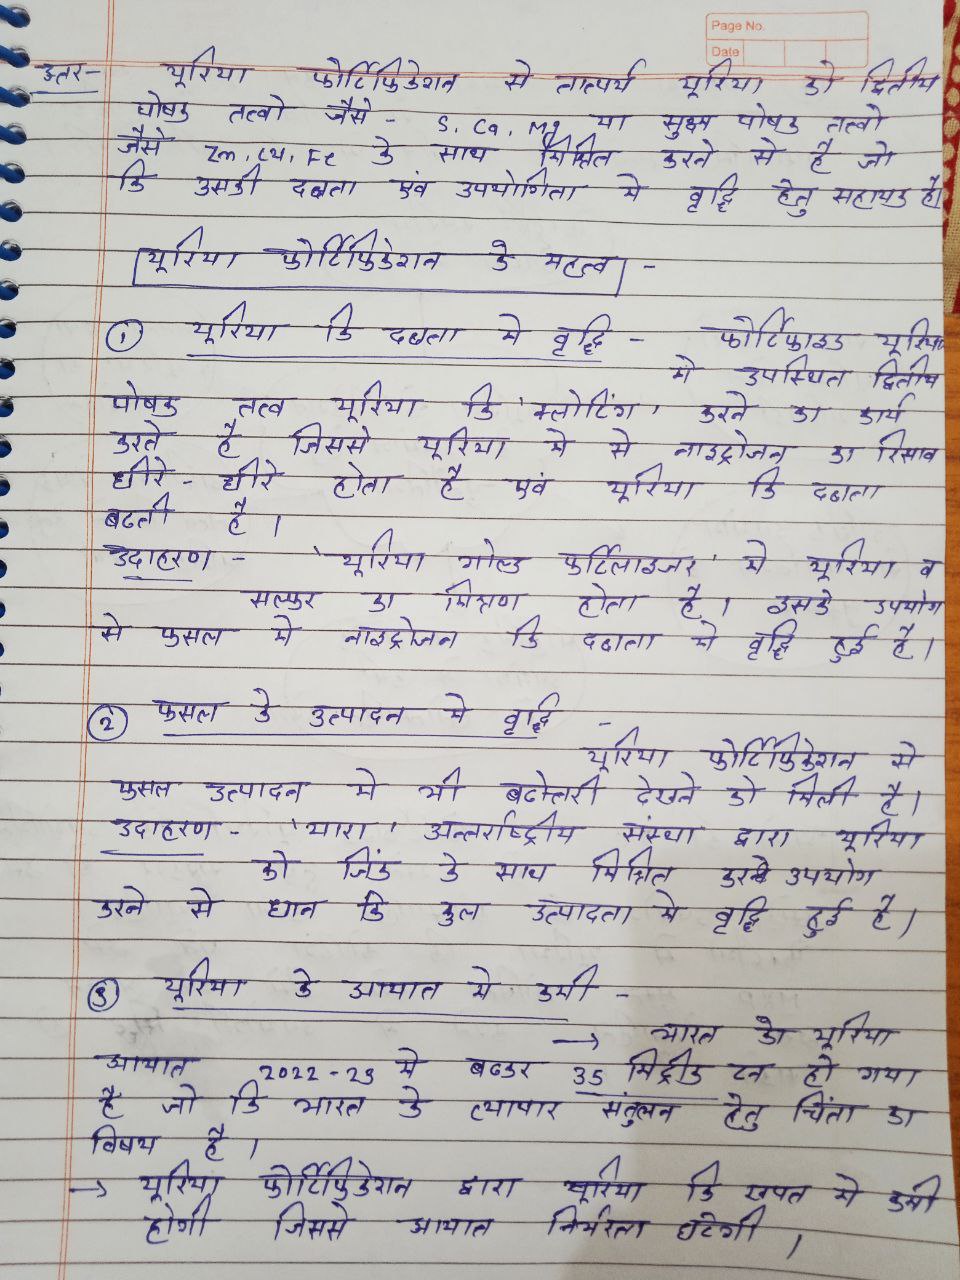 Page No.
Date
उत्तर- यूरिया फोर्टिफिकेशन से तात्पर्य यूरिया को द्वितीय
पोषक तत्वो जैसे - S, Ca, Mg या सुक्ष्म पोषक तत्वो
जैसे Zn, Cu, Fe के साथ मिश्रित करने से है जो
कि उसकी दक्षता एवं उपयोगिता मे वृद्धि हेतु सहायक है।
यूरिया फोर्टिफिकेशन के महत्व -
① यूरिया कि दक्षता मे वृद्धि - फोर्टिफाइड यूरिया
मे उपस्थित द्वितीय
पोषक तत्व यूरिया कि 'क्लोटिंग' करने का कार्य
करते है जिससे यूरिया मे से नाइट्रोजन का रिसाव
धीरे - धीरे होता है एवं यूरिया कि दक्षता
बढती है।
उदाहरण - 'यूरिया गोल्ड फर्टिलाइजर' मे यूरिया व
सल्फर का मिश्रण होता है। इसके उपयोग
से फसल मे नाइट्रोजन कि दक्षता मे वृद्धि हुई है।
② फसल के उत्पादन मे वृद्धि -
यूरिया फोर्टिफिकेशन से
फसल उत्पादन मे भी बढोत्तरी देखने को मिली है।
उदाहरण - 'यारा' अन्तर्राष्ट्रीय संस्था द्वारा यूरिया
को जिंक के साथ मिश्रित करके उपयोग
करने से धान कि कुल उत्पादता मे वृद्धि हुई है।
③ यूरिया के आयात मे कमी -
→ भारत का यूरिया
आयात 2022-23 मे बढकर 35 मिट्रीक टन हो गया
है जो कि भारत के व्यापार संतुलन हेतु चिंता का
विषय है।
→ यूरिया फोर्टिफिकेशन द्वारा यूरिया कि खपत मे कमी
होगी जिससे आयात निर्भरता घटेगी।